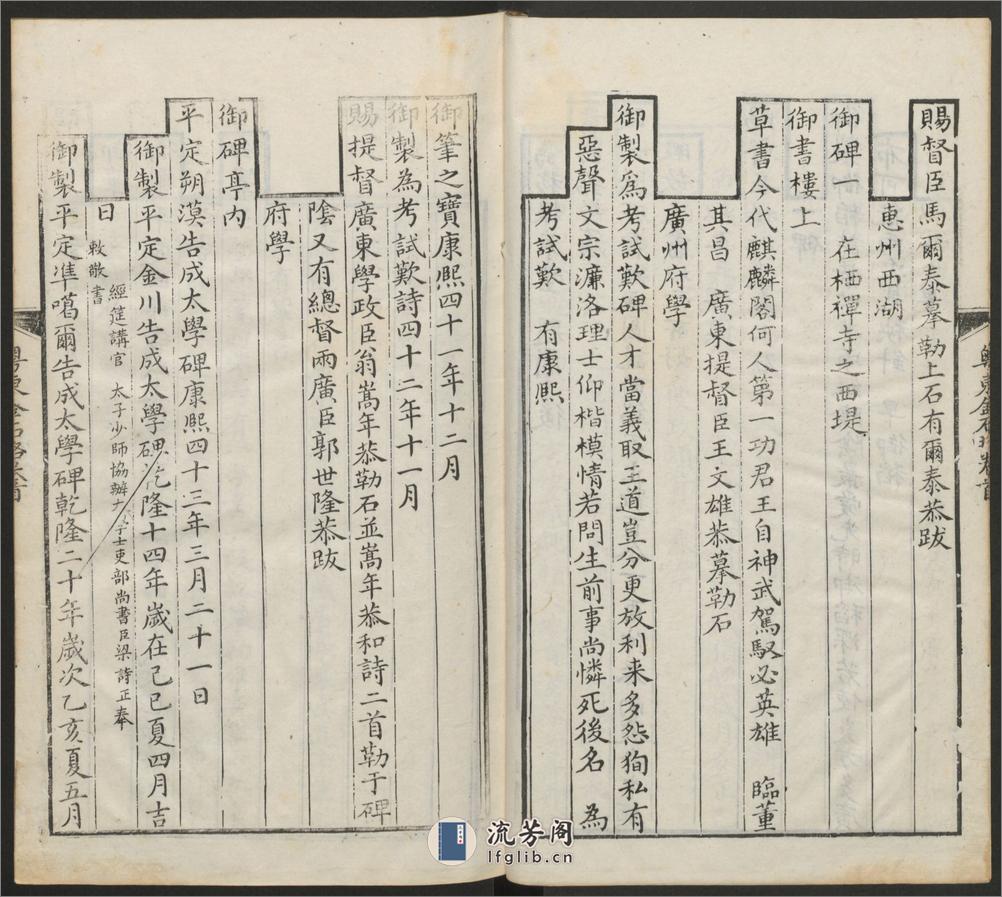 賜督臣馬爾泰摹勒上石有爾泰恭跋
惠州西湖
御碑一 在栖禪寺之西堤
御書樓上
草書今代麒麟閣何人第一功君王自神武駕馭必英雄 臨董
其昌 廣東提督臣王文雄恭摹勒石
廣州府學
御製爲考試歎碑人才當義取王道豈分更放利来多怨狥私有
惡聲文宗濂洛理士仰楷模情若問生前事尚憐死後名 為
考試歎 有康熙
御筆之寶康熙四十一年十二月
御製為考試歎詩四十二年十一月
賜提督廣東學政臣翁嵩年恭勒石並嵩年恭和詩二首勒于碑
隂又有總督兩廣臣郭世隆恭跋
府學
御碑亭内
平定朔漠告成太學碑康熙四十三年三月二十一日
御製平定金川告成太學碑乾隆十四年歲在己巳夏四月吉
日 經筵講官 太子少師協辦大學士吏部尚書臣梁詩正奉
敕敬書
御製平定準噶爾告成太學碑乾隆二十年歲次乙亥夏五月
粤東金石略卷首
粤東金石略卷首
流芳阁
lfglib.cn